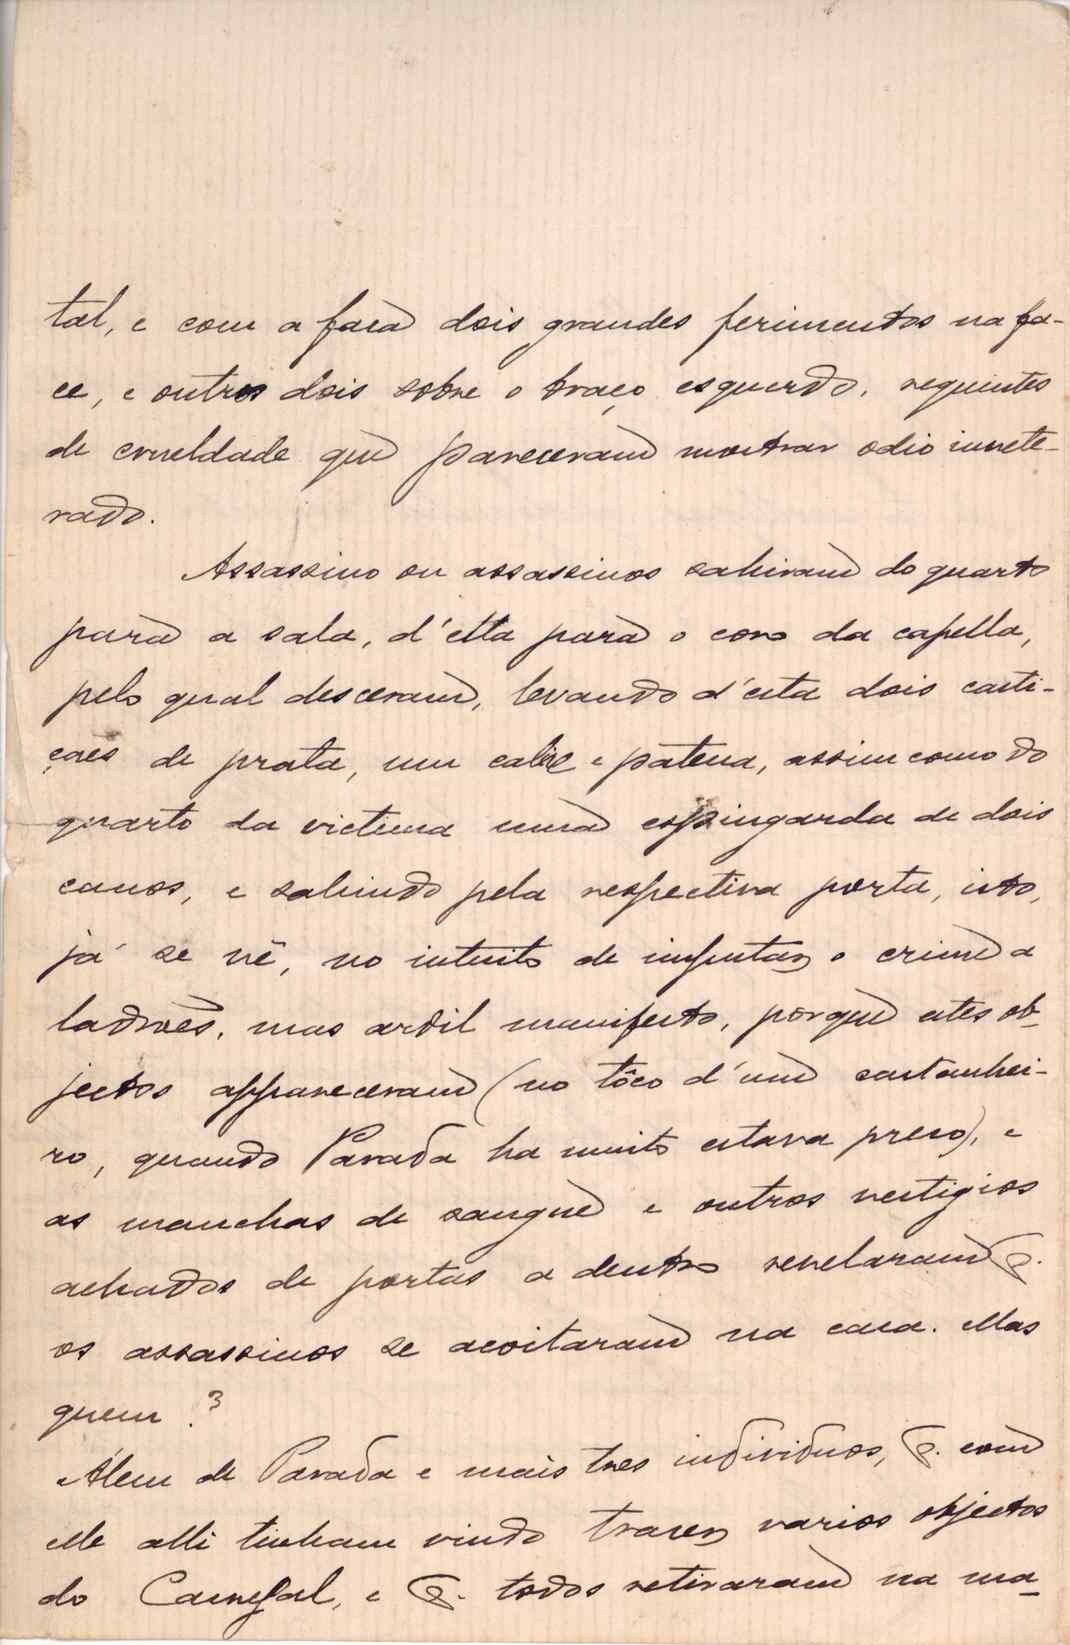 tal, e com a faca dois grandes ferimentos na fa-
ce, e outros dois sobre o braço esquerdo, requintes
de crueldade que pareceram mostrar odio invete-
rado.
Assassino ou assassinos sahiram do quarto
para a sala, d'ella para o coro da capella,
pelo qual desceram, levando d'esta dois casti-
çaes de prata, um calix e patena, assim como do
quarto da victima uma espingarda de dois
canos, e sahindo pela respectiva porta, isto,
já se vê, no intuito de imputar o crime a
ladroẽs, mas ardil manifesto, porque estes ob-
jectos appareceram (no tôco d'um castanhei-
ro, quando Parada ha muito estava preso), e
as manchas de sangue e outros vestigios
achados de portas a dentro revelaram q.
os assassinos se acoitaram na casa. Mas
quem?
Alem de Parada e mais tres individuos, q. com
elle alli tinham vindo trazer varios objectos
do Campal, e q. todos retiraram na ma-